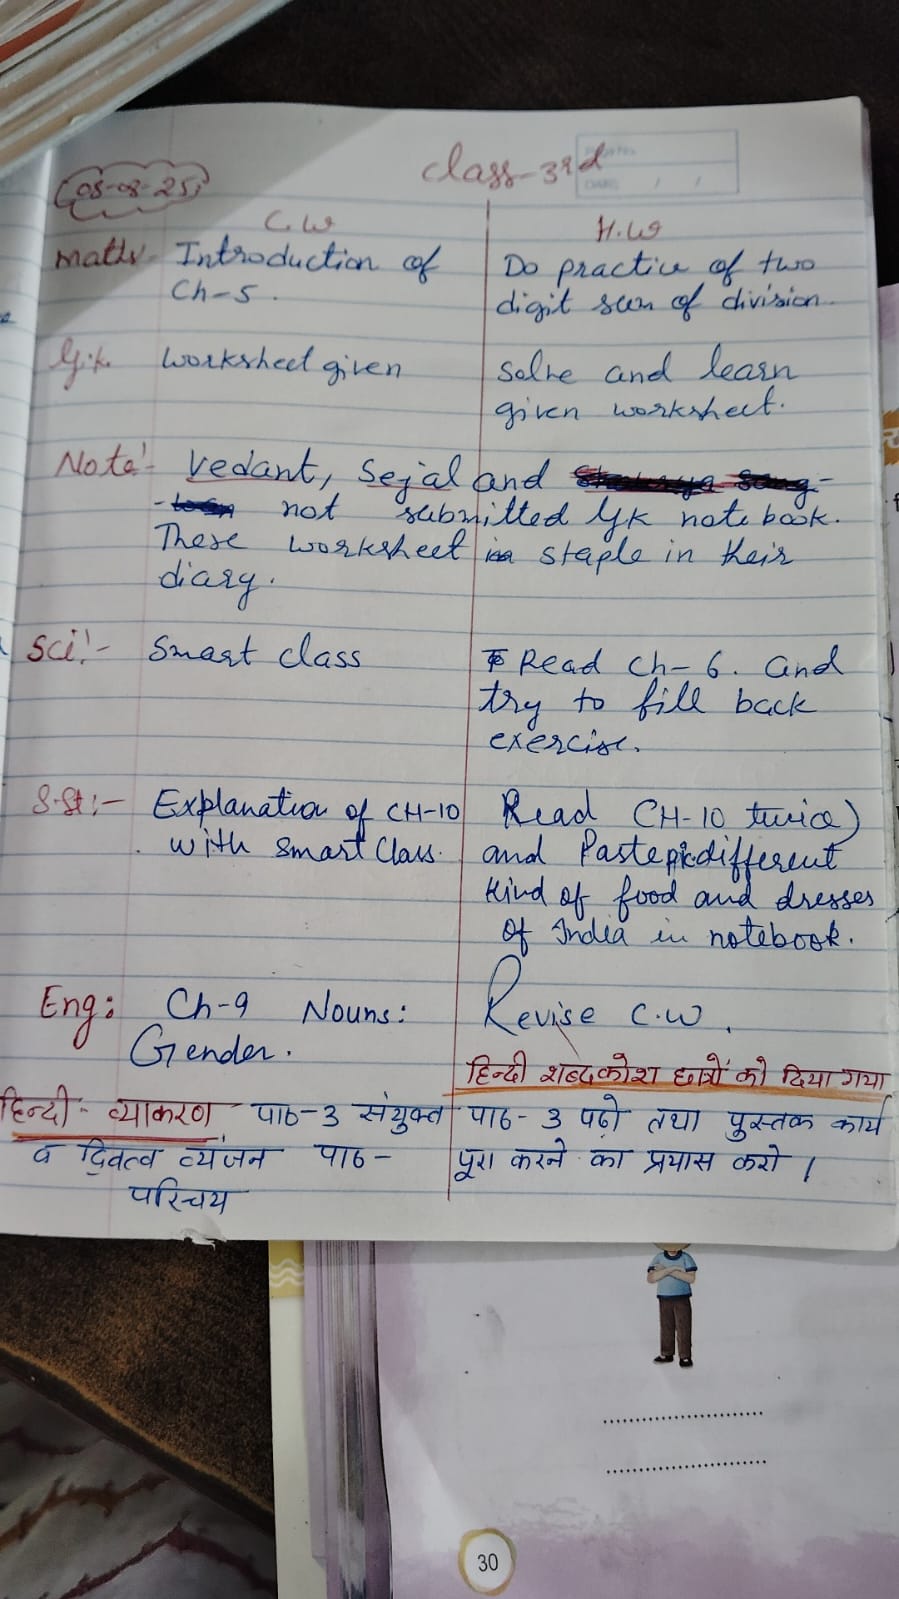 08-08-25
Class-3rd
C.W
H.W
Maths- Introduction of
Ch-5.
Do practice of two
digit sum of division.
G.K. Worksheet given
Solve and learn
given worksheet.
Note:- Vedant, Sejal and
not submitted GK notebook.
These worksheet staple in their
diary.
Sci:- Smart class
Read Ch-6. and
try to fill back
exercise.
S.St:- Explanation of CH-10
with Smart Class.
Read CH-10 twice)
and Paste pic different
kind of food and dresses
of India in notebook.
Eng: Ch-9 Nouns:
Gender.
Revise C.W.
हिन्दी शब्दकोश छात्रों को दिया गया
हिन्दी - व्याकरण पाठ-3 संयुक्त
व द्वित्व व्यंजन पाठ-
परिचय
पाठ-3 पढ़ो तथा पुस्तक कार्य
पूरा करने का प्रयास करो।
30